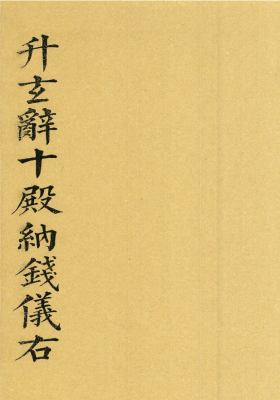 升玄辭十殿納錢儀右